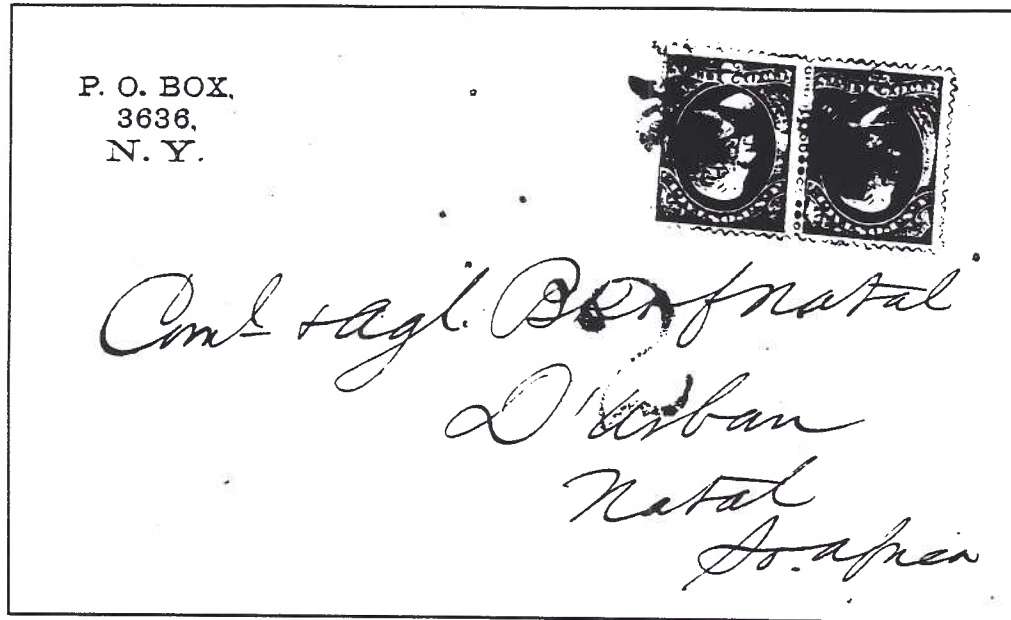 P. O. BOX,
3636,
N. Y.
Coml & Agl. Bk of Natal
D'Urban
Natal
So. Africa